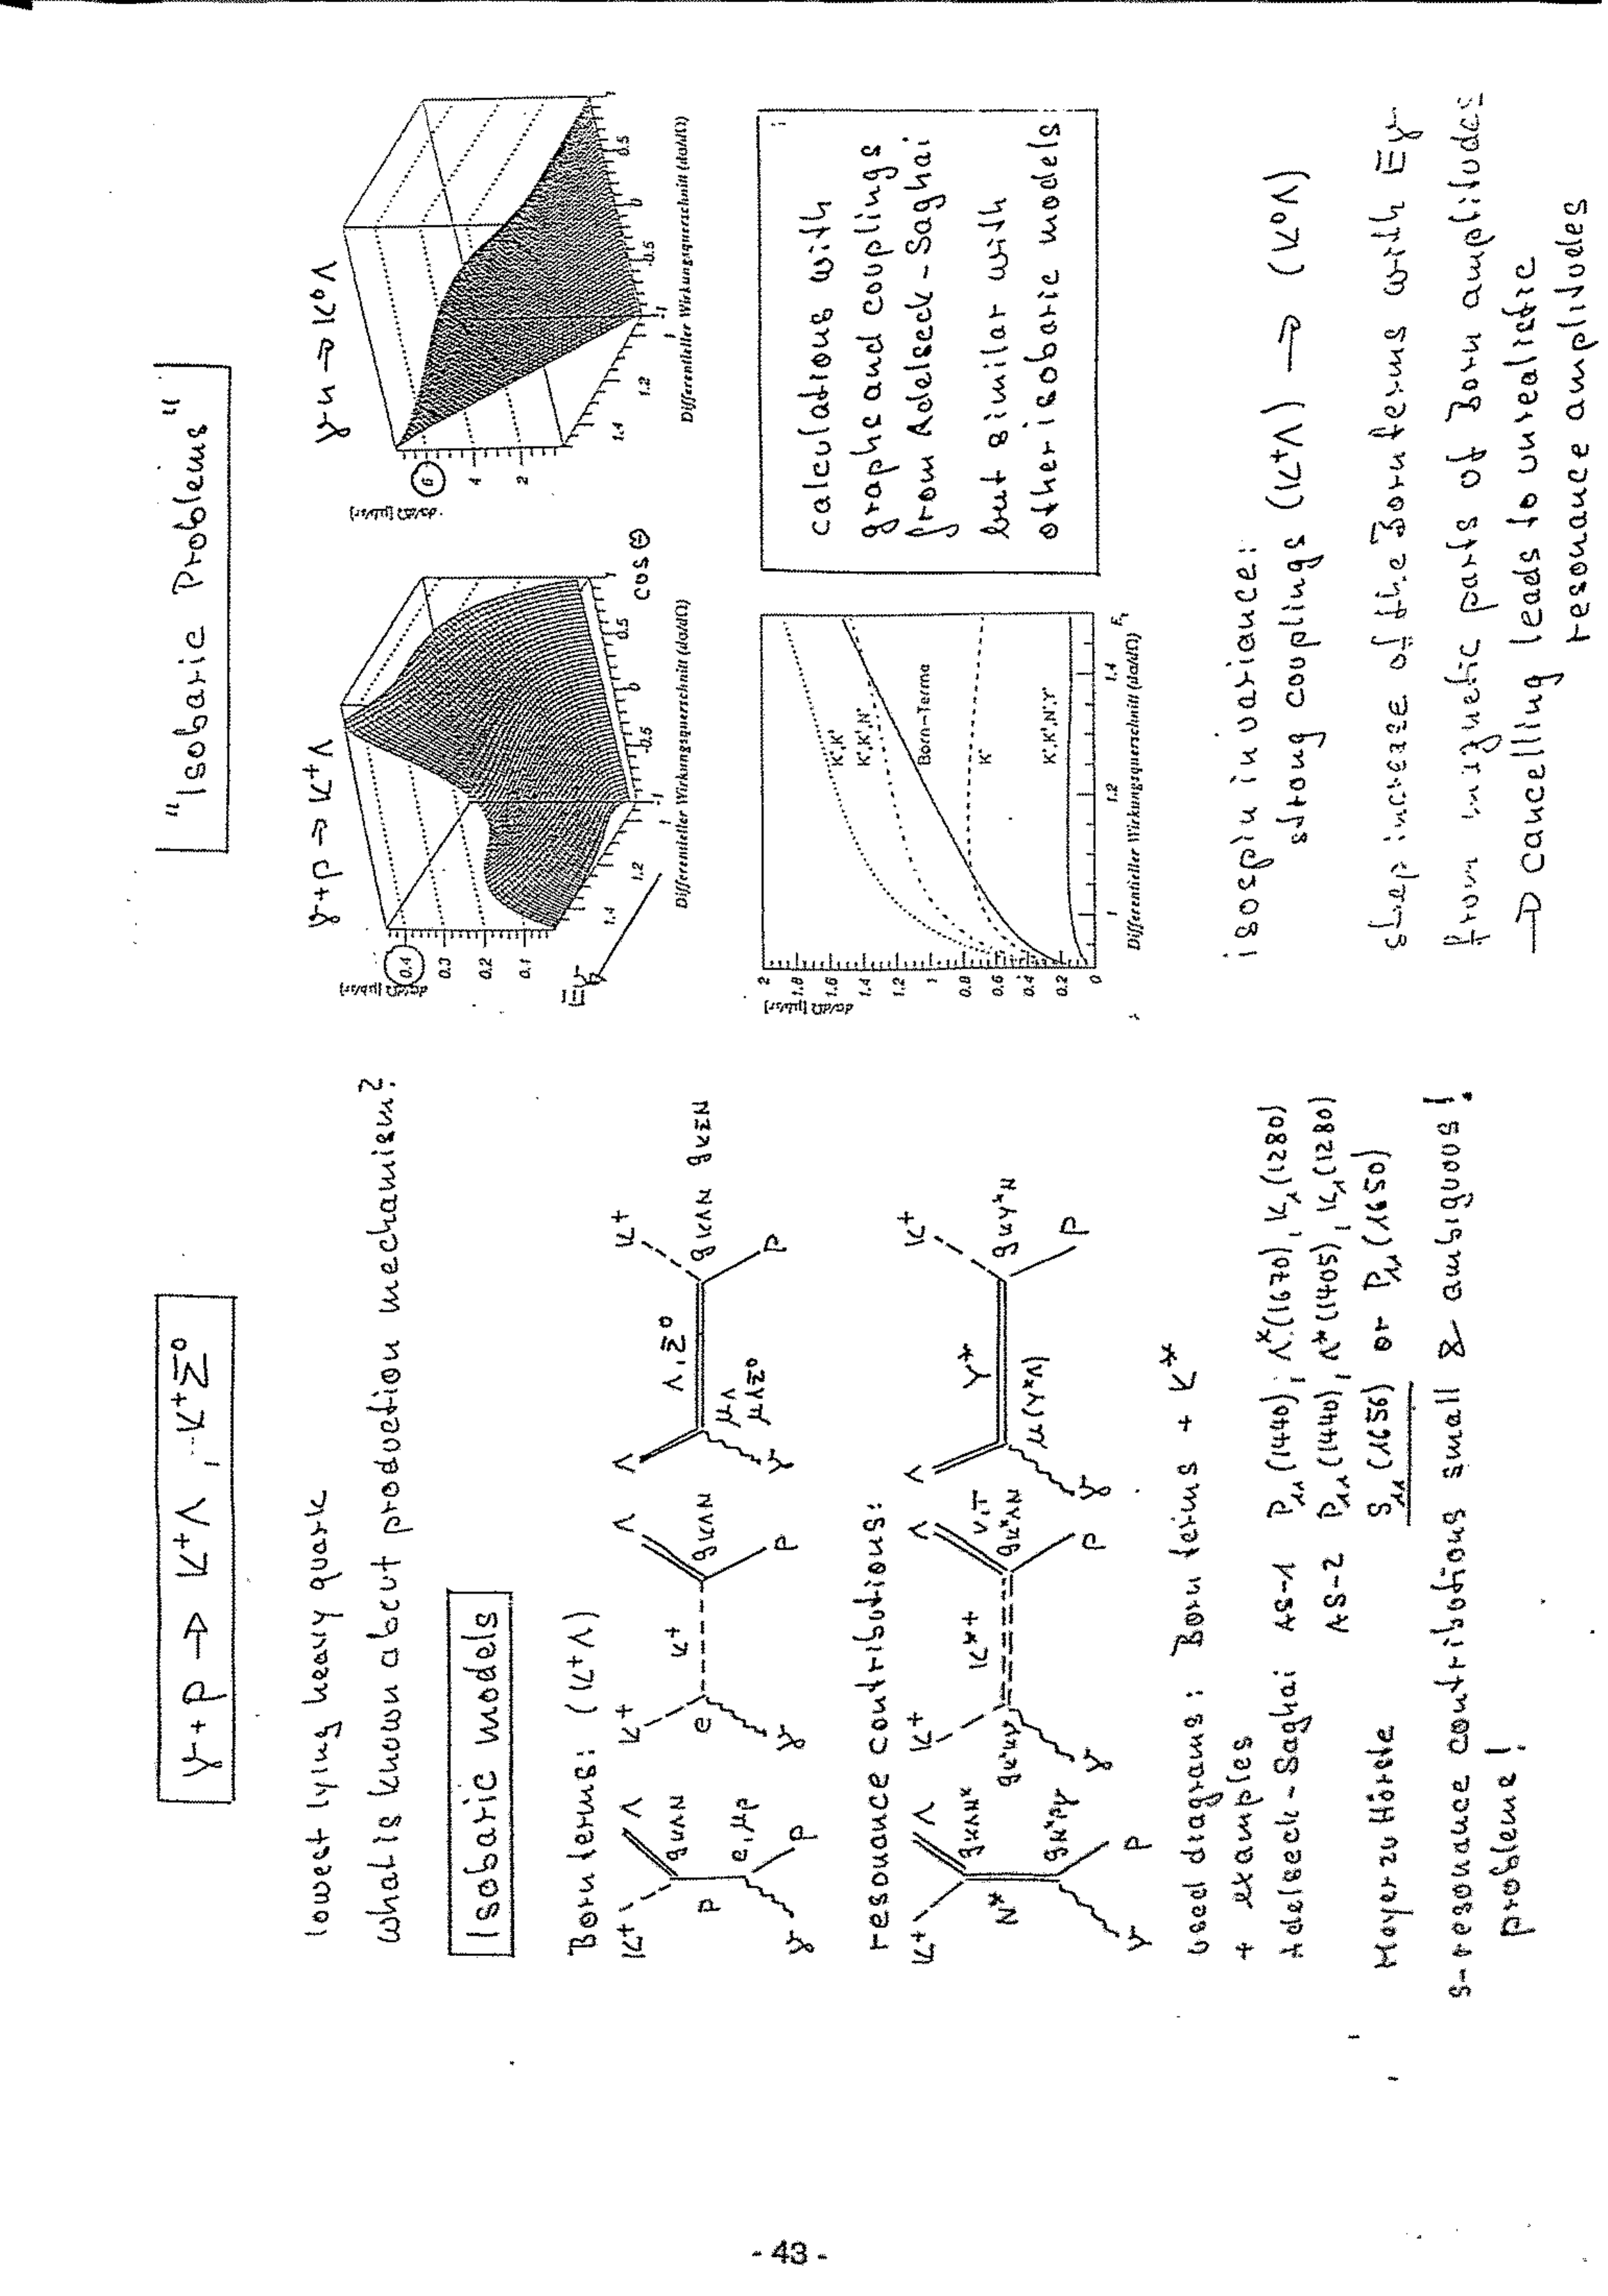 γ + p → K⁺Λ, K⁺Σ⁰
lowest lying heavy quark
what is known about production mechanism?
Isobaric models
Born terms: (K⁺Λ)
K⁺ Λ K⁺ Λ Λ K⁺
gKΛN K⁺ gKΛN Λ,Σ⁰ gKΛN gKΣN
p e,μp e μΛ μΛΣ⁰
γ p γ p γ p
resonance contributions:
K⁺ Λ K⁺ Λ Λ K⁺
gKΛN* K*⁺ V,T Y*
N* gN*pγ gK*Kγ gK*ΛN μ(Y*Λ) gKY*N
γ p γ p γ p
used diagrams: Born terms + K*
+ examples
Adelseck-Saghai AS-1 P₁₁(1440), Λ*(1670), K₁(1280)
AS-2 P₁₁(1440), Λ*(1405), K₁(1280)
Mayer zu Hörste S₁₁(1656) or P₁₁(1650)
s-resonance contributions small & ambiguous!
probleme!
"Isobaric Problems"
γ + p → K⁺Λ
dσ/dΩ [μb/sr]
0.4
0.3
0.2
0.1
Eγ
1.4 1.2 1 -1 -0.5 0 0.5 1
cos Θ
Differentieller Wirkungsquerschnitt (dσ/dΩ)
γ n → K⁰Λ
dσ/dΩ [μb/sr]
6
4
2
1.4 1.2 1 -1 -0.5 0 0.5 1
Differentieller Wirkungsquerschnitt (dσ/dΩ)
dσ/dΩ [μb/sr]
2
1.8
1.6
1.4
1.2
1
0.8
0.6
0.4
0.2
0
K*,K¹
K*,K¹,N*
Born-Terme
K*
K*,K¹,N*,Y*
1 1.2 1.4 Eγ
Differentieller Wirkungsquerschnitt (dσ/dΩ)
calculations with
graphs and couplings
from Adelseck-Saghai
but similar with
other isobaric models
isospin invariance:
strong couplings (K⁺Λ) → (K⁰Λ)
step increase of the Born terms with Eγ
from magnetic parts of Born amplitudes
→ cancelling leads to unrealistic
resonance amplitudes
- 43 -